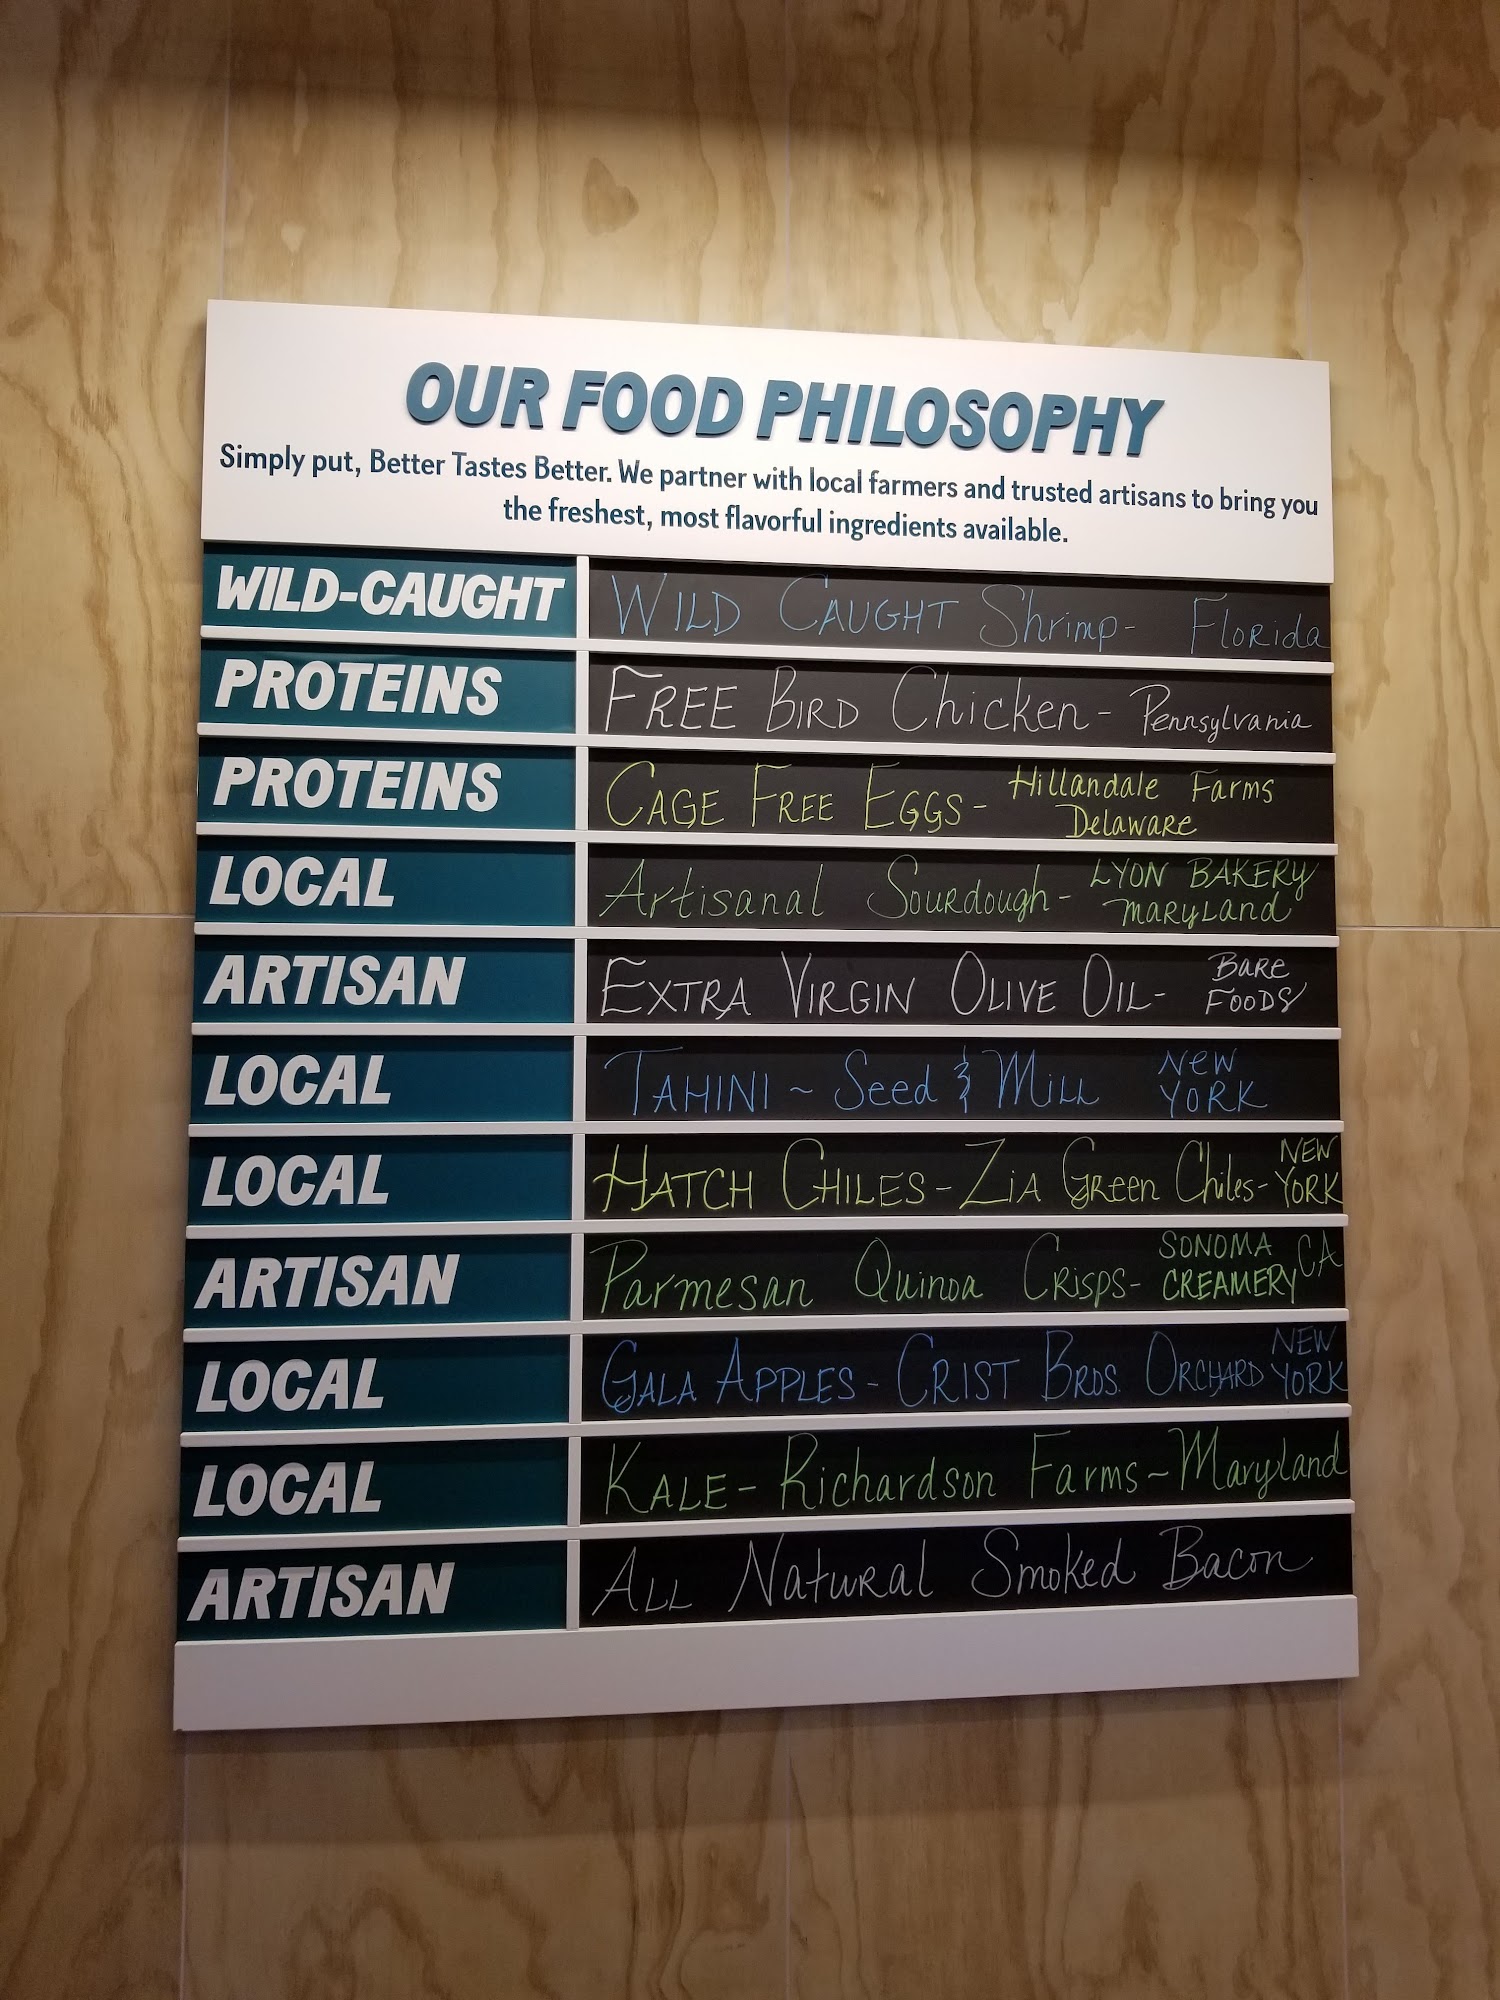 OUR FOOD PHILOSOPHY
Simply put, Better Tastes Better. We partner with local farmers and trusted artisans to bring you
the freshest, most flavorful ingredients available.
WILD-CAUGHT WILD CAUGHT Shrimp- Florida
PROTEINS FREE BIRD Chicken- Pennsylvania
PROTEINS CAGE FREE EGGS- Hillandale Farms
Delaware
LOCAL Artisanal Sourdough- LYON BAKERY
MARYLAND
ARTISAN EXTRA VIRGIN OLIVE OIL- BARE
FOODS
LOCAL TAHINI ~ Seed & MILL NEW
YORK
LOCAL HATCH CHILES- ZIA GREEN Chiles- NEW
YORK
ARTISAN Parmesan Quinoa CRISPS- SONOMA
CREAMERY CA
LOCAL GALA APPLES- CRIST BROS. ORCHARD NEW
YORK
LOCAL KALE- Richardson Farms~Maryland
ARTISAN ALL NATURAL Smoked Bacon